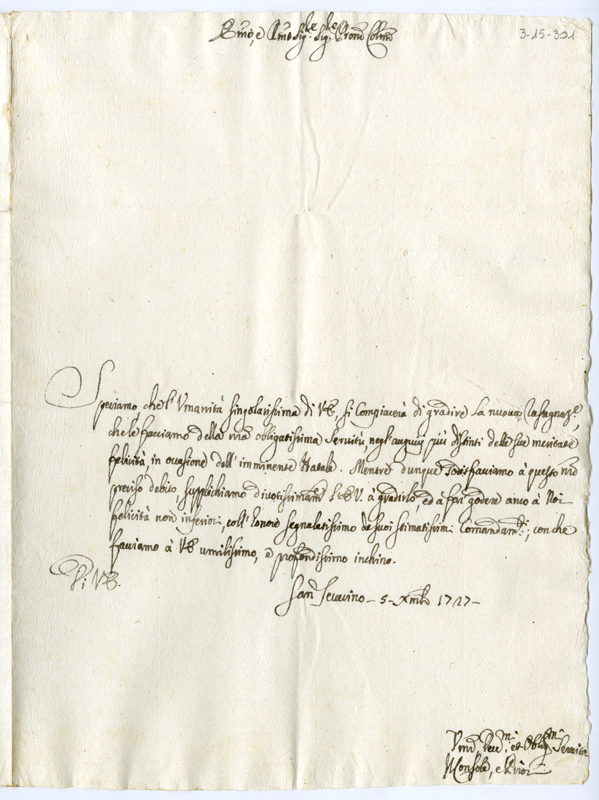 3-15-301
Emo, e Rmo Sig.re Sig.re Prone Colmo
Speriamo che l'Umanità singolarissima di V.E. si compiacerà di gradire la nuova rassegnaz.e,
che le facciamo della nra obligatissima servitù negl'augurij più distinti delle sue meritate
felicità, in occasione dell'imminente Natale. Mentre dunque sodisfacciamo à questo nro
preciso debito, supplichiamo divotissimam.te l'E.V. à gradirlo, ed à far godere anco à Noi
felicità non inferiori, coll'honore segnalatissimo de suoi stimatissimi Comandam.ti; con che
facciamo à V.E. umilissimo, e profondissimo inchino.
Di V.E.
San Severino - 5 - Xmbre 1727 -
Umi, Dev.mi, et Obl.mi Servitori
Console, e Priori